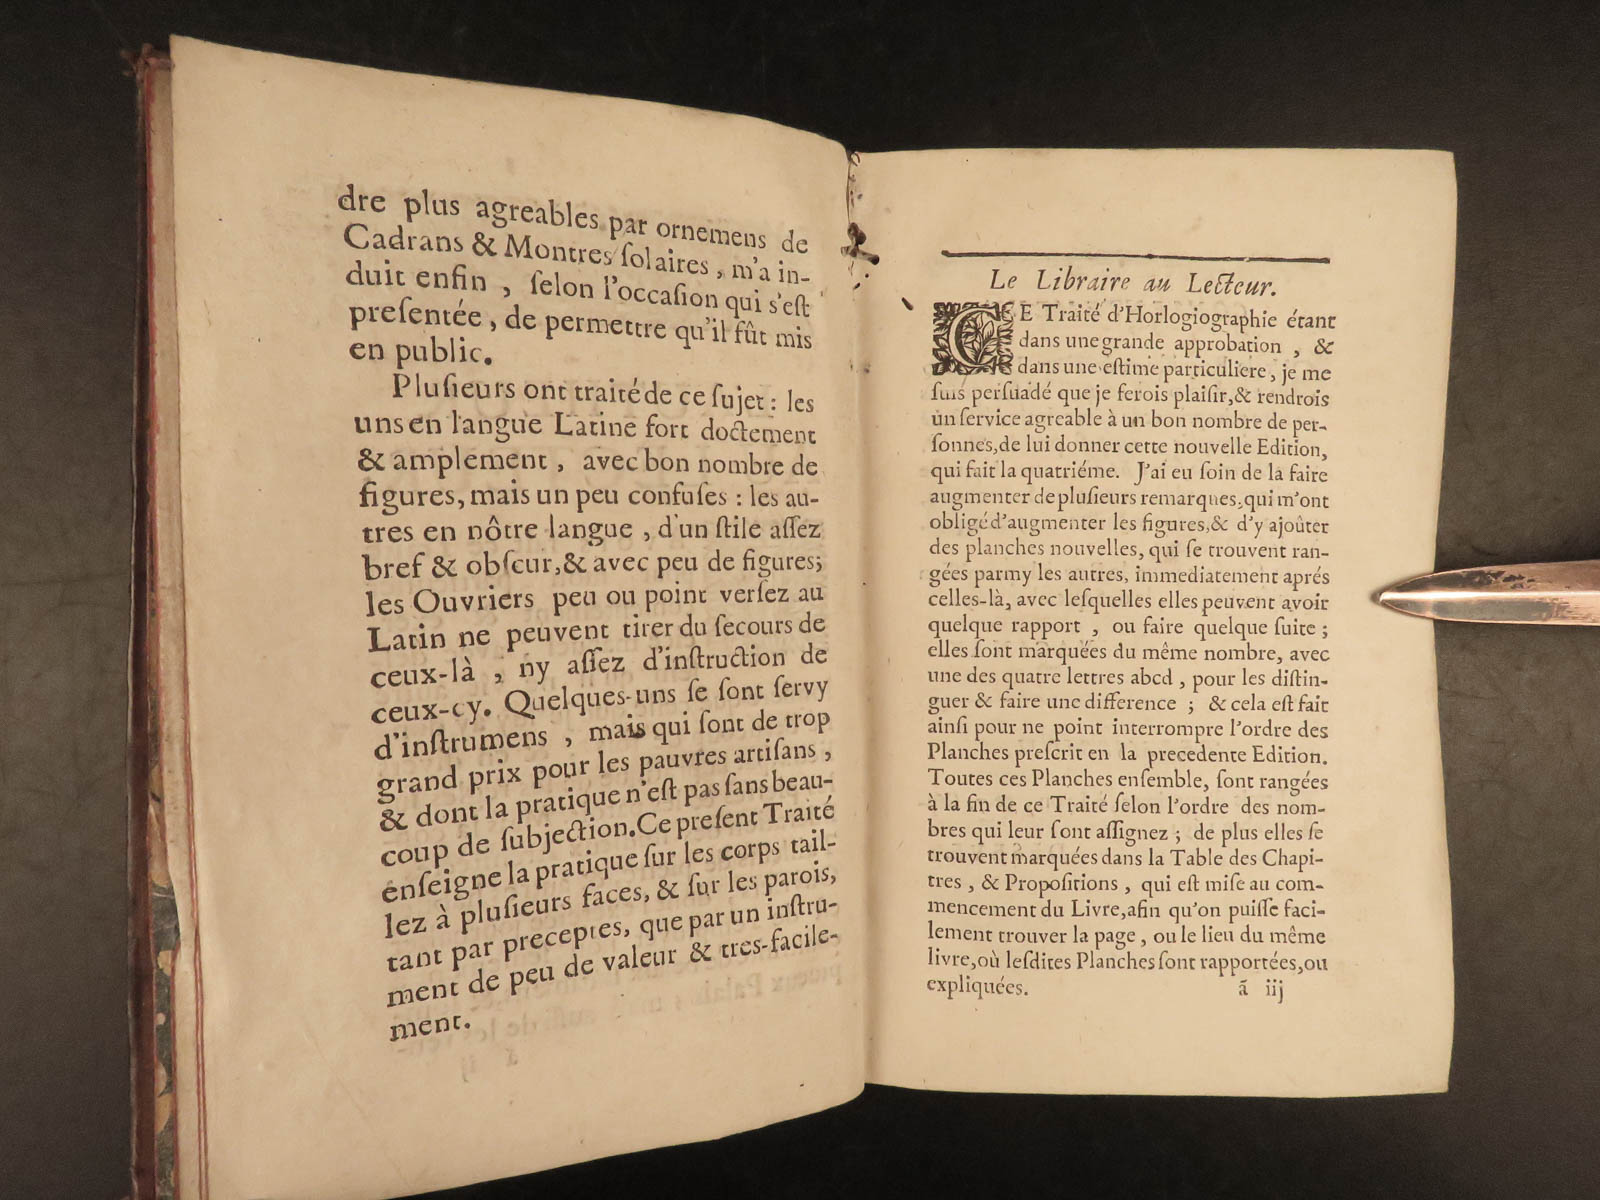 dre plus agreables par ornemens de
Cadrans & Montres ſolaires, m'a in-
duit enfin, ſelon l'occaſion qui s'eſt
preſentée, de permettre qu'il fût mis
en public.
Pluſieurs ont traité de ce ſujet : les
uns en langue Latine fort doctement
& amplement, avec bon nombre de
figures, mais un peu confuſes : les au-
tres en nôtre langue, d'un ſtile aſſez
bref & obſcur, & avec peu de figures;
les Ouvriers peu ou point verſez au
Latin ne peuvent tirer du ſecours de
ceux-là, ny aſſez d'inſtruction de
ceux-cy. Quelques-uns ſe ſont ſervy
d'inſtrumens, mais qui ſont de trop
grand prix pour les pauvres artiſans,
& dont la pratique n'eſt pas ſans beau-
coup de ſubjection. Ce preſent Traité
enſeigne la pratique ſur les corps tail-
lez à pluſieurs faces, & ſur les parois,
tant par preceptes, que par un inſtru-
ment de peu de valeur & tres-facile-
ment.
Le Libraire au Lecteur.
CE Traité d'Horlogiographie étant
dans une grande approbation, &
dans une eſtime particuliere, je me
ſuis perſuadé que je ferois plaiſir, & rendrois
un ſervice agreable à un bon nombre de per-
ſonnes, de lui donner cette nouvelle Edition,
qui fait la quatriéme. J'ai eu ſoin de la faire
augmenter de pluſieurs remarques, qui m'ont
obligé d'augmenter les figures, & d'y ajoûter
des planches nouvelles, qui ſe trouvent ran-
gées parmy les autres, immediatement aprés
celles-là, avec leſquelles elles peuvent avoir
quelque rapport, ou faire quelque ſuite ;
elles ſont marquées du même nombre, avec
une des quatre lettres abcd, pour les diſtin-
guer & faire une difference ; & cela eſt fait
ainſi pour ne point interrompre l'ordre des
Planches preſcrit en la precedente Edition.
Toutes ces Planches enſemble, ſont rangées
à la fin de ce Traité ſelon l'ordre des nom-
bres qui leur ſont aſſignez ; de plus elles ſe
trouvent marquées dans la Table des Chapi-
tres, & Propoſitions, qui eſt miſe au com-
mencement du Livre, afin qu'on puiſſe faci-
lement trouver la page, ou le lieu du même
livre, où leſdites Planches ſont rapportées, ou
expliquées.
ã iij